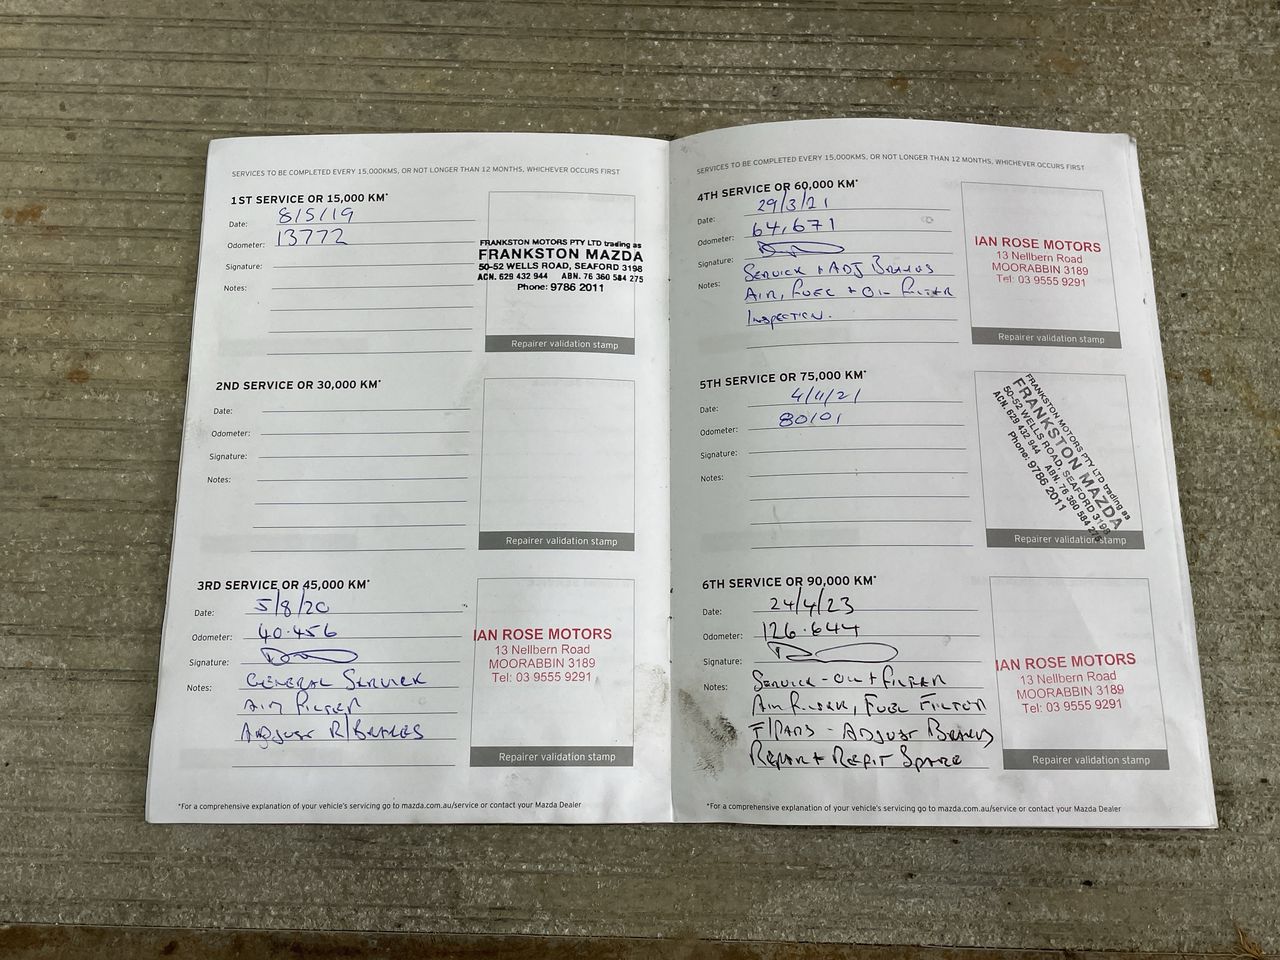 SERVICES TO BE COMPLETED EVERY 15,000KMS, OR NOT LONGER THAN 12 MONTHS, WHICHEVER OCCURS FIRST
1ST SERVICE OR 15,000 KM*
Date: 8/5/19
Odometer: 13772
Signature:
Notes:
FRANKSTON MOTORS PTY LTD trading as
FRANKSTON MAZDA
50-52 WELLS ROAD, SEAFORD 3198
ACN. 629 432 944 ABN. 76 360 584 275
Phone: 9786 2011
Repairer validation stamp
2ND SERVICE OR 30,000 KM*
Date:
Odometer:
Signature:
Notes:
Repairer validation stamp
3RD SERVICE OR 45,000 KM*
Date: 5/8/20
Odometer: 40.456
Signature:
Notes: GENERAL SERVICE
AIR FILTER
ADJUST R/BRAKES
IAN ROSE MOTORS
13 Nellbern Road
MOORABBIN 3189
Tel: 03 9555 9291
Repairer validation stamp
*For a comprehensive explanation of your vehicle's servicing go to mazda.com.au/service or contact your Mazda Dealer
SERVICES TO BE COMPLETED EVERY 15,000KMS, OR NOT LONGER THAN 12 MONTHS, WHICHEVER OCCURS FIRST
4TH SERVICE OR 60,000 KM*
Date: 29/3/21
Odometer: 64,671
Signature:
Notes: SERVICE + ADJ BRAKES
AIR, FUEL + OIL FILTER
INSPECTION.
IAN ROSE MOTORS
13 Nellbern Road
MOORABBIN 3189
Tel: 03 9555 9291
Repairer validation stamp
5TH SERVICE OR 75,000 KM*
Date: 4/11/21
Odometer: 80101
Signature:
Notes:
FRANKSTON MOTORS PTY LTD trading as
FRANKSTON MAZDA
50-52 WELLS ROAD, SEAFORD 3198
ACN. 629 432 944 ABN. 76 360 584 275
Phone: 9786 2011
Repairer validation stamp
6TH SERVICE OR 90,000 KM*
Date: 24/4/23
Odometer: 126.644
Signature:
Notes: SERVICE - OIL + FILTER
AIR FILTER, FUEL FILTER
F/PADS - ADJUST BRAKES
REPAIR + REFIT SPARE
IAN ROSE MOTORS
13 Nellbern Road
MOORABBIN 3189
Tel: 03 9555 9291
Repairer validation stamp
*For a comprehensive explanation of your vehicle's servicing go to mazda.com.au/service or contact your Mazda Dealer